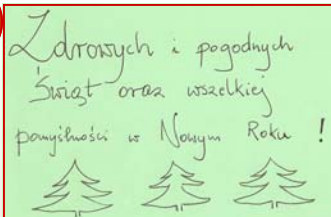 Zdrowych i pogodnych
Świąt oraz wszelkiej
pomyślności w Nowym Roku !